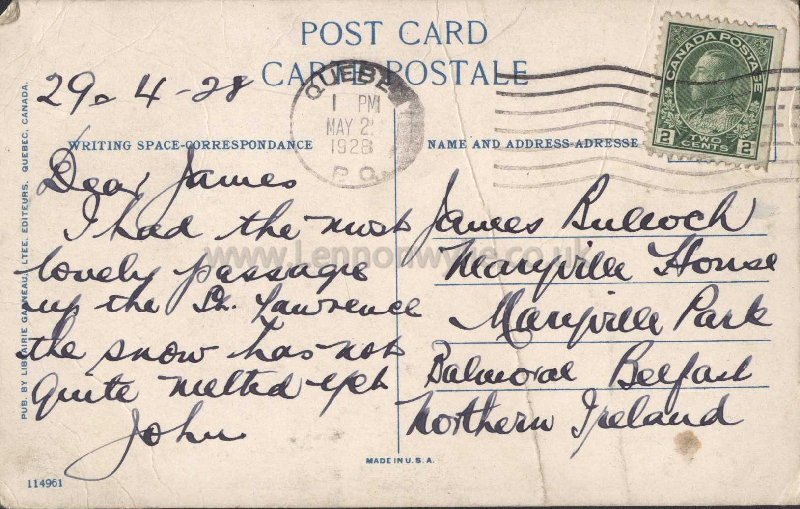 POST CARD
CARTE POSTALE
29-4-28
QUEBEC
1 PM
MAY 2
1928
P.Q.
CANADA POSTAGE
2 TWO CENTS 2
WRITING SPACE-CORRESPONDANCE
NAME AND ADDRESS-ADRESSE
Dear James
I had the most
lovely passage
up the St. Lawrence
the snow has not
quite melted yet
John
James Bulloch
Maryville House
Maryville Park
Balmoral Belfast
Northern Ireland
PUB. BY LIBRAIRIE GARNEAU, LTEE, EDITEURS, QUEBEC, CANADA.
MADE IN U.S.A.
114961
www.Lennonwylie.co.uk